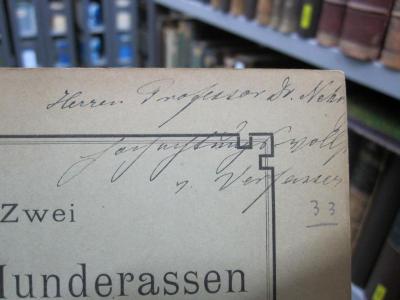 Herren Professor Dr. Nehr
hochachtungsvoll
v. Verfasser
33
Zwei
Hunderassen